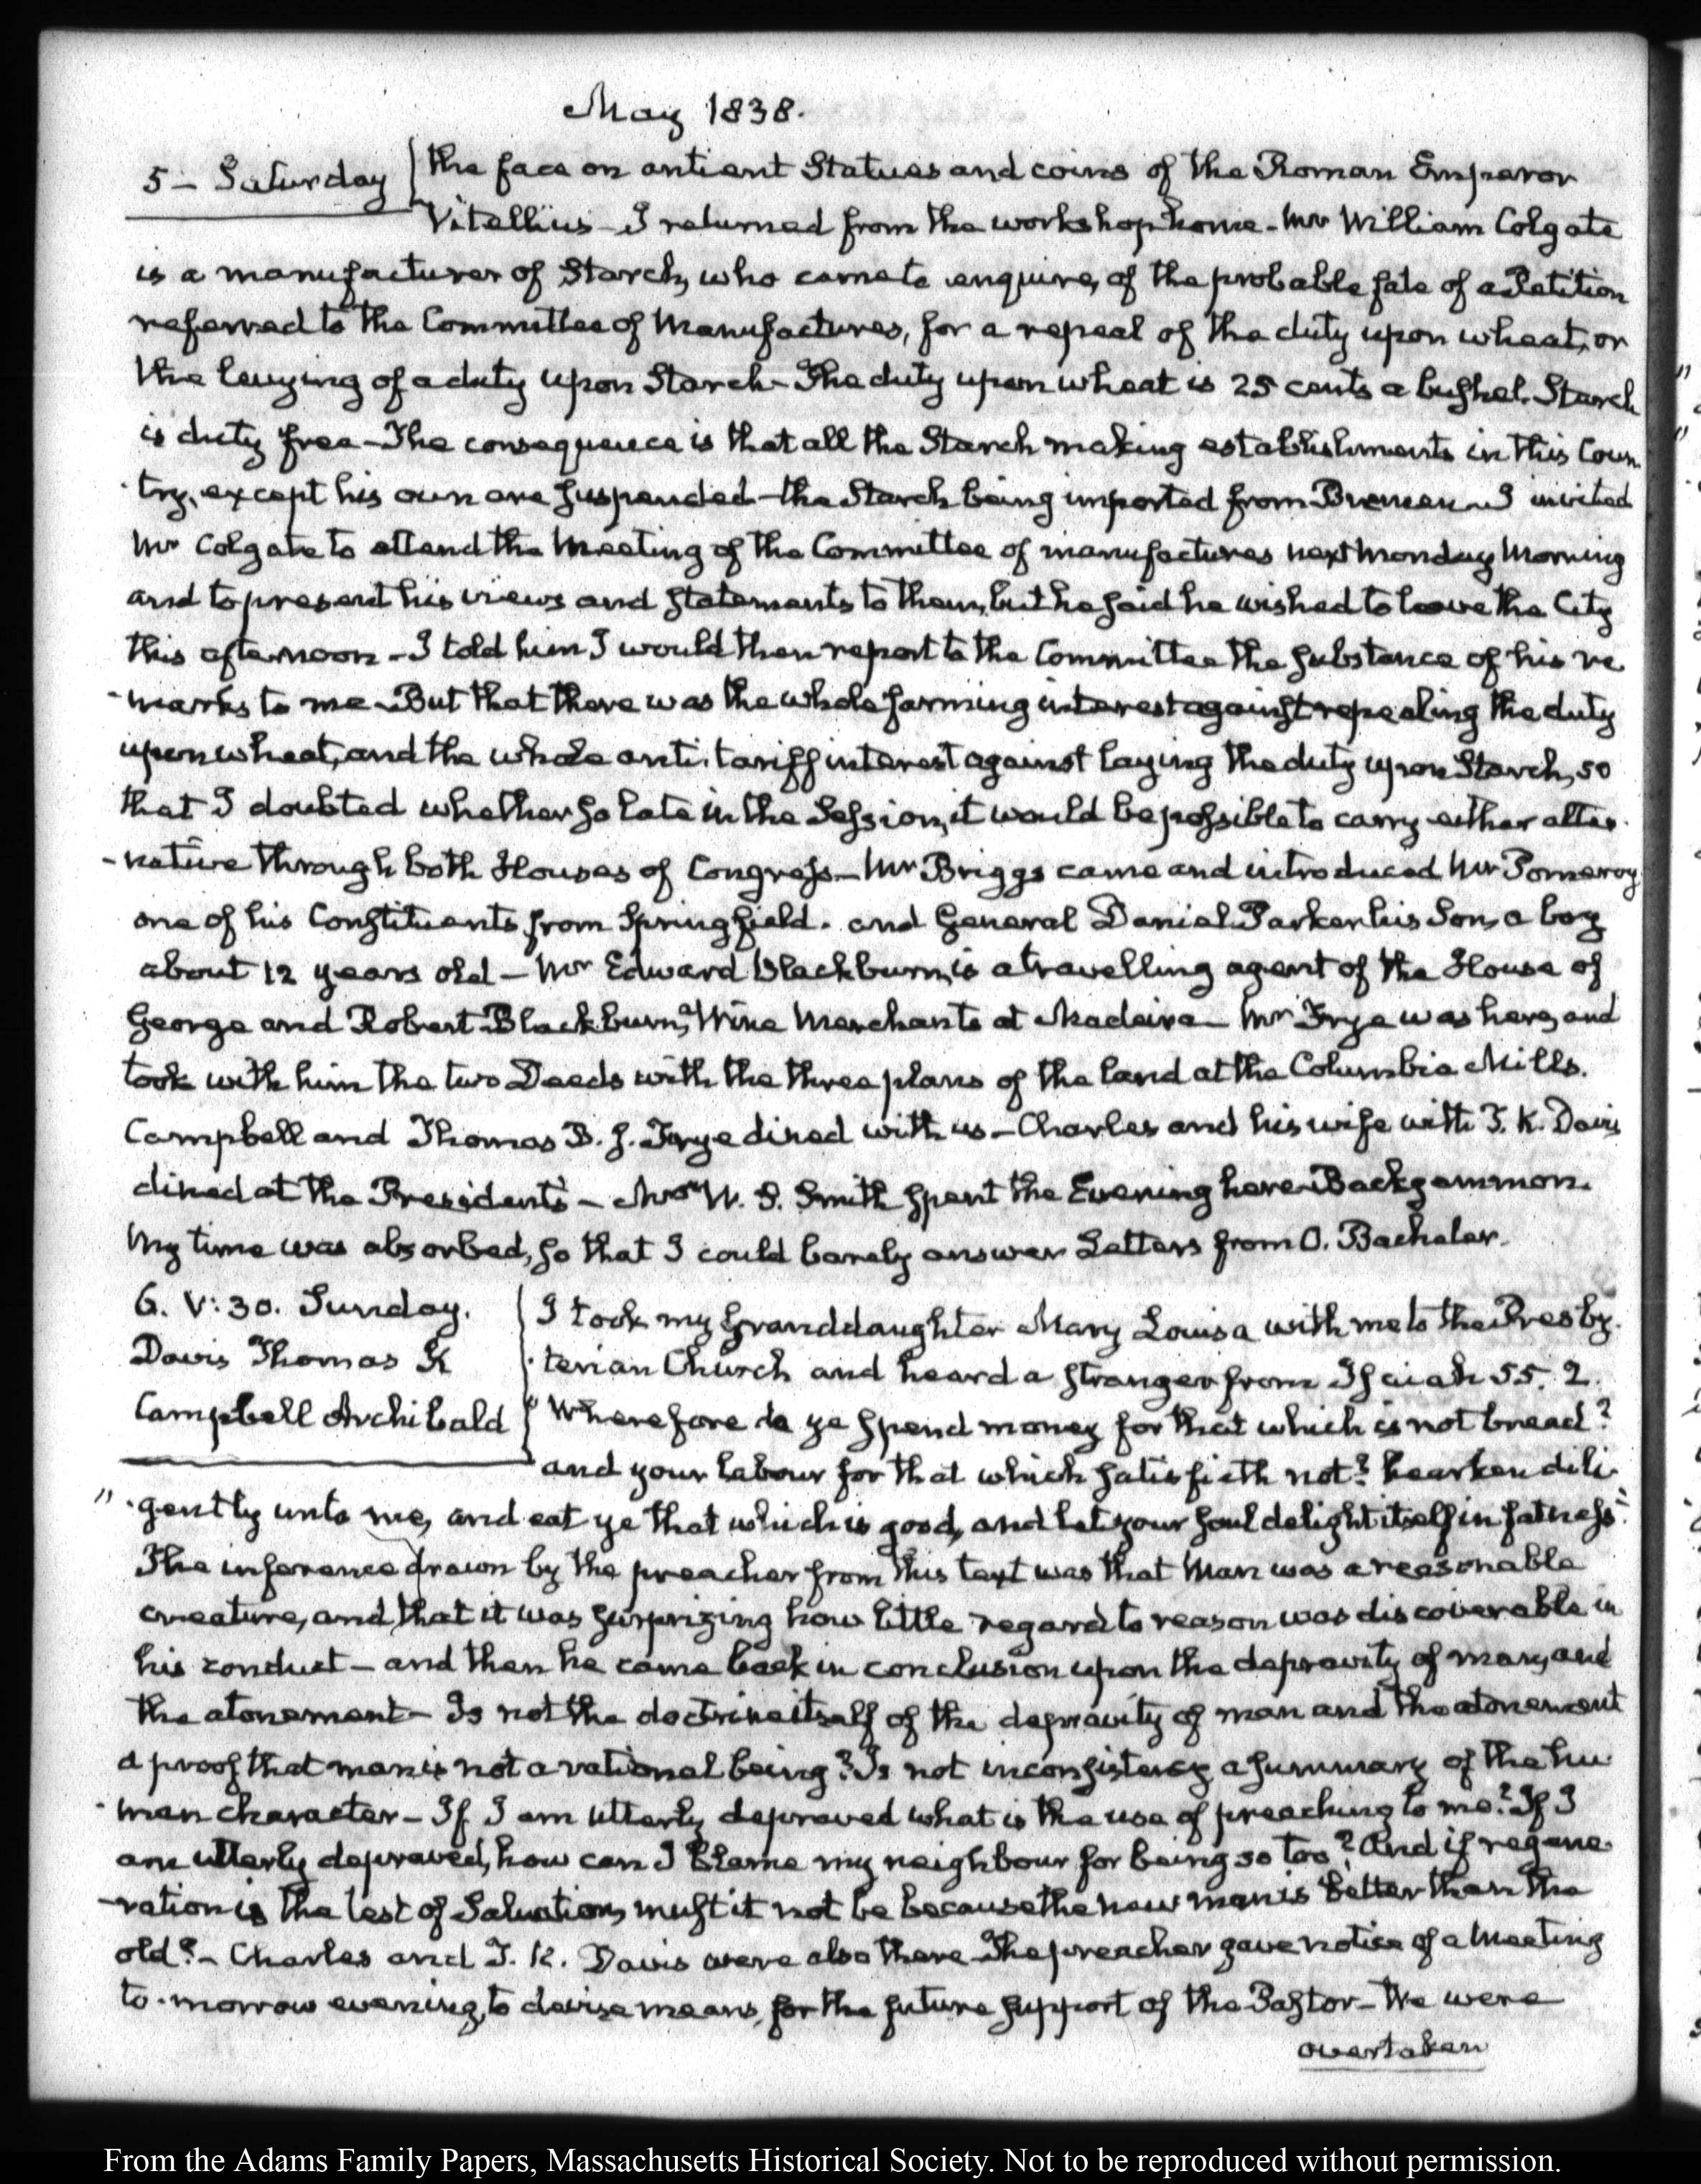 May 1838.
5 - Saturday
the face on antient Statues and coins of the Roman Emperor
Vitellius - I returned from the workshop home - Mr William Colgate
is a manufacturer of Starch, who came to enquire, of the probable fate of a Petition
referred to the Committee of Manufactures, for a repeal of the duty upon wheat, or
the levying of a duty upon Starch - The duty upon wheat is 25 cents a bushel. Starch
is duty free - The consequence is that all the Starch making establishments in this Coun
try, except his own are suspended - the Starch being imported from Bremen - I invited
Mr Colgate to attend the Meeting of the Committee of manufactures next Monday Morning
and to present his views and statements to them, but he said he wished to leave the City
this afternoon - I told him I would then report to the Committee the substance of his re
-marks to me - But that there was the whole farming interest against repealing the duty
upon wheat, and the whole anti-tariff interest against laying the duty upon Starch, so
that I doubted whether so late in the Session, it would be possible to carry either alter-
-native through both Houses of Congress - Mr Briggs came and introduced Mr Pomeroy
one of his Constituents from Springfield. and General Daniel Parker his Son, a boy
about 12 years old - Mr Edward Blackburn, is a travelling agent of the House of
George and Robert Blackburn, Wine Merchants at Madeira - Mr Frye was here, and
took with him the two Deeds with the three plans of the land at the Columbia Mills.
Campbell and Thomas B. J. Frye dined with us - Charles and his wife with T. K. Davis
dined at the President's - Mrs W. S. Smith spent the Evening here - Backgammon.
My time was absorbed, so that I could barely answer Letters from O. Bachelor.
6. V:30. Sunday.
Davis Thomas K
Campbell Archibald
I took my Granddaughter Mary Louisa with me to the Presby-
-terian Church and heard a stranger from Isaiah 55. 2.
"Wherefore do ye spend money for that which is not bread?
and your labour for that which satisfieth not? hearken dili-
" -gently unto me, and eat ye that which is good, and let your soul delight itself in fatness"
The inference drawn by the preacher from this text was that Man was a reasonable
creature, and that it was surprizing how little regard to reason was discoverable in
his conduct - and then he came back in conclusion upon the depravity of man, and
the atonement - Is not the doctrine itself of the depravity of man and the atonement
a proof that man is not a rational being? Is not inconsistency a summary of the hu
-man character - If I am utterly depraved what is the use of preaching to me? If I
am utterly depraved, how can I blame my neighbour for being so too? And if regene-
-ration is the test of Salvation, must it not be because the new man is better than the
old? - Charles and T. K. Davis were also there - The preacher gave notice of a Meeting
to-morrow evening, to devise means, for the future support of the Pastor - We were
overtaken
From the Adams Family Papers, Massachusetts Historical Society. Not to be reproduced without permission.